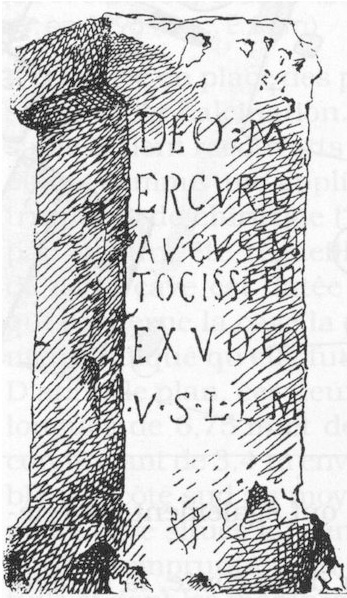 DEO·M
ERCVRIO
AVGVSIVE
TOCISSEFIL
EX VOTO
·V·S·L·L·M